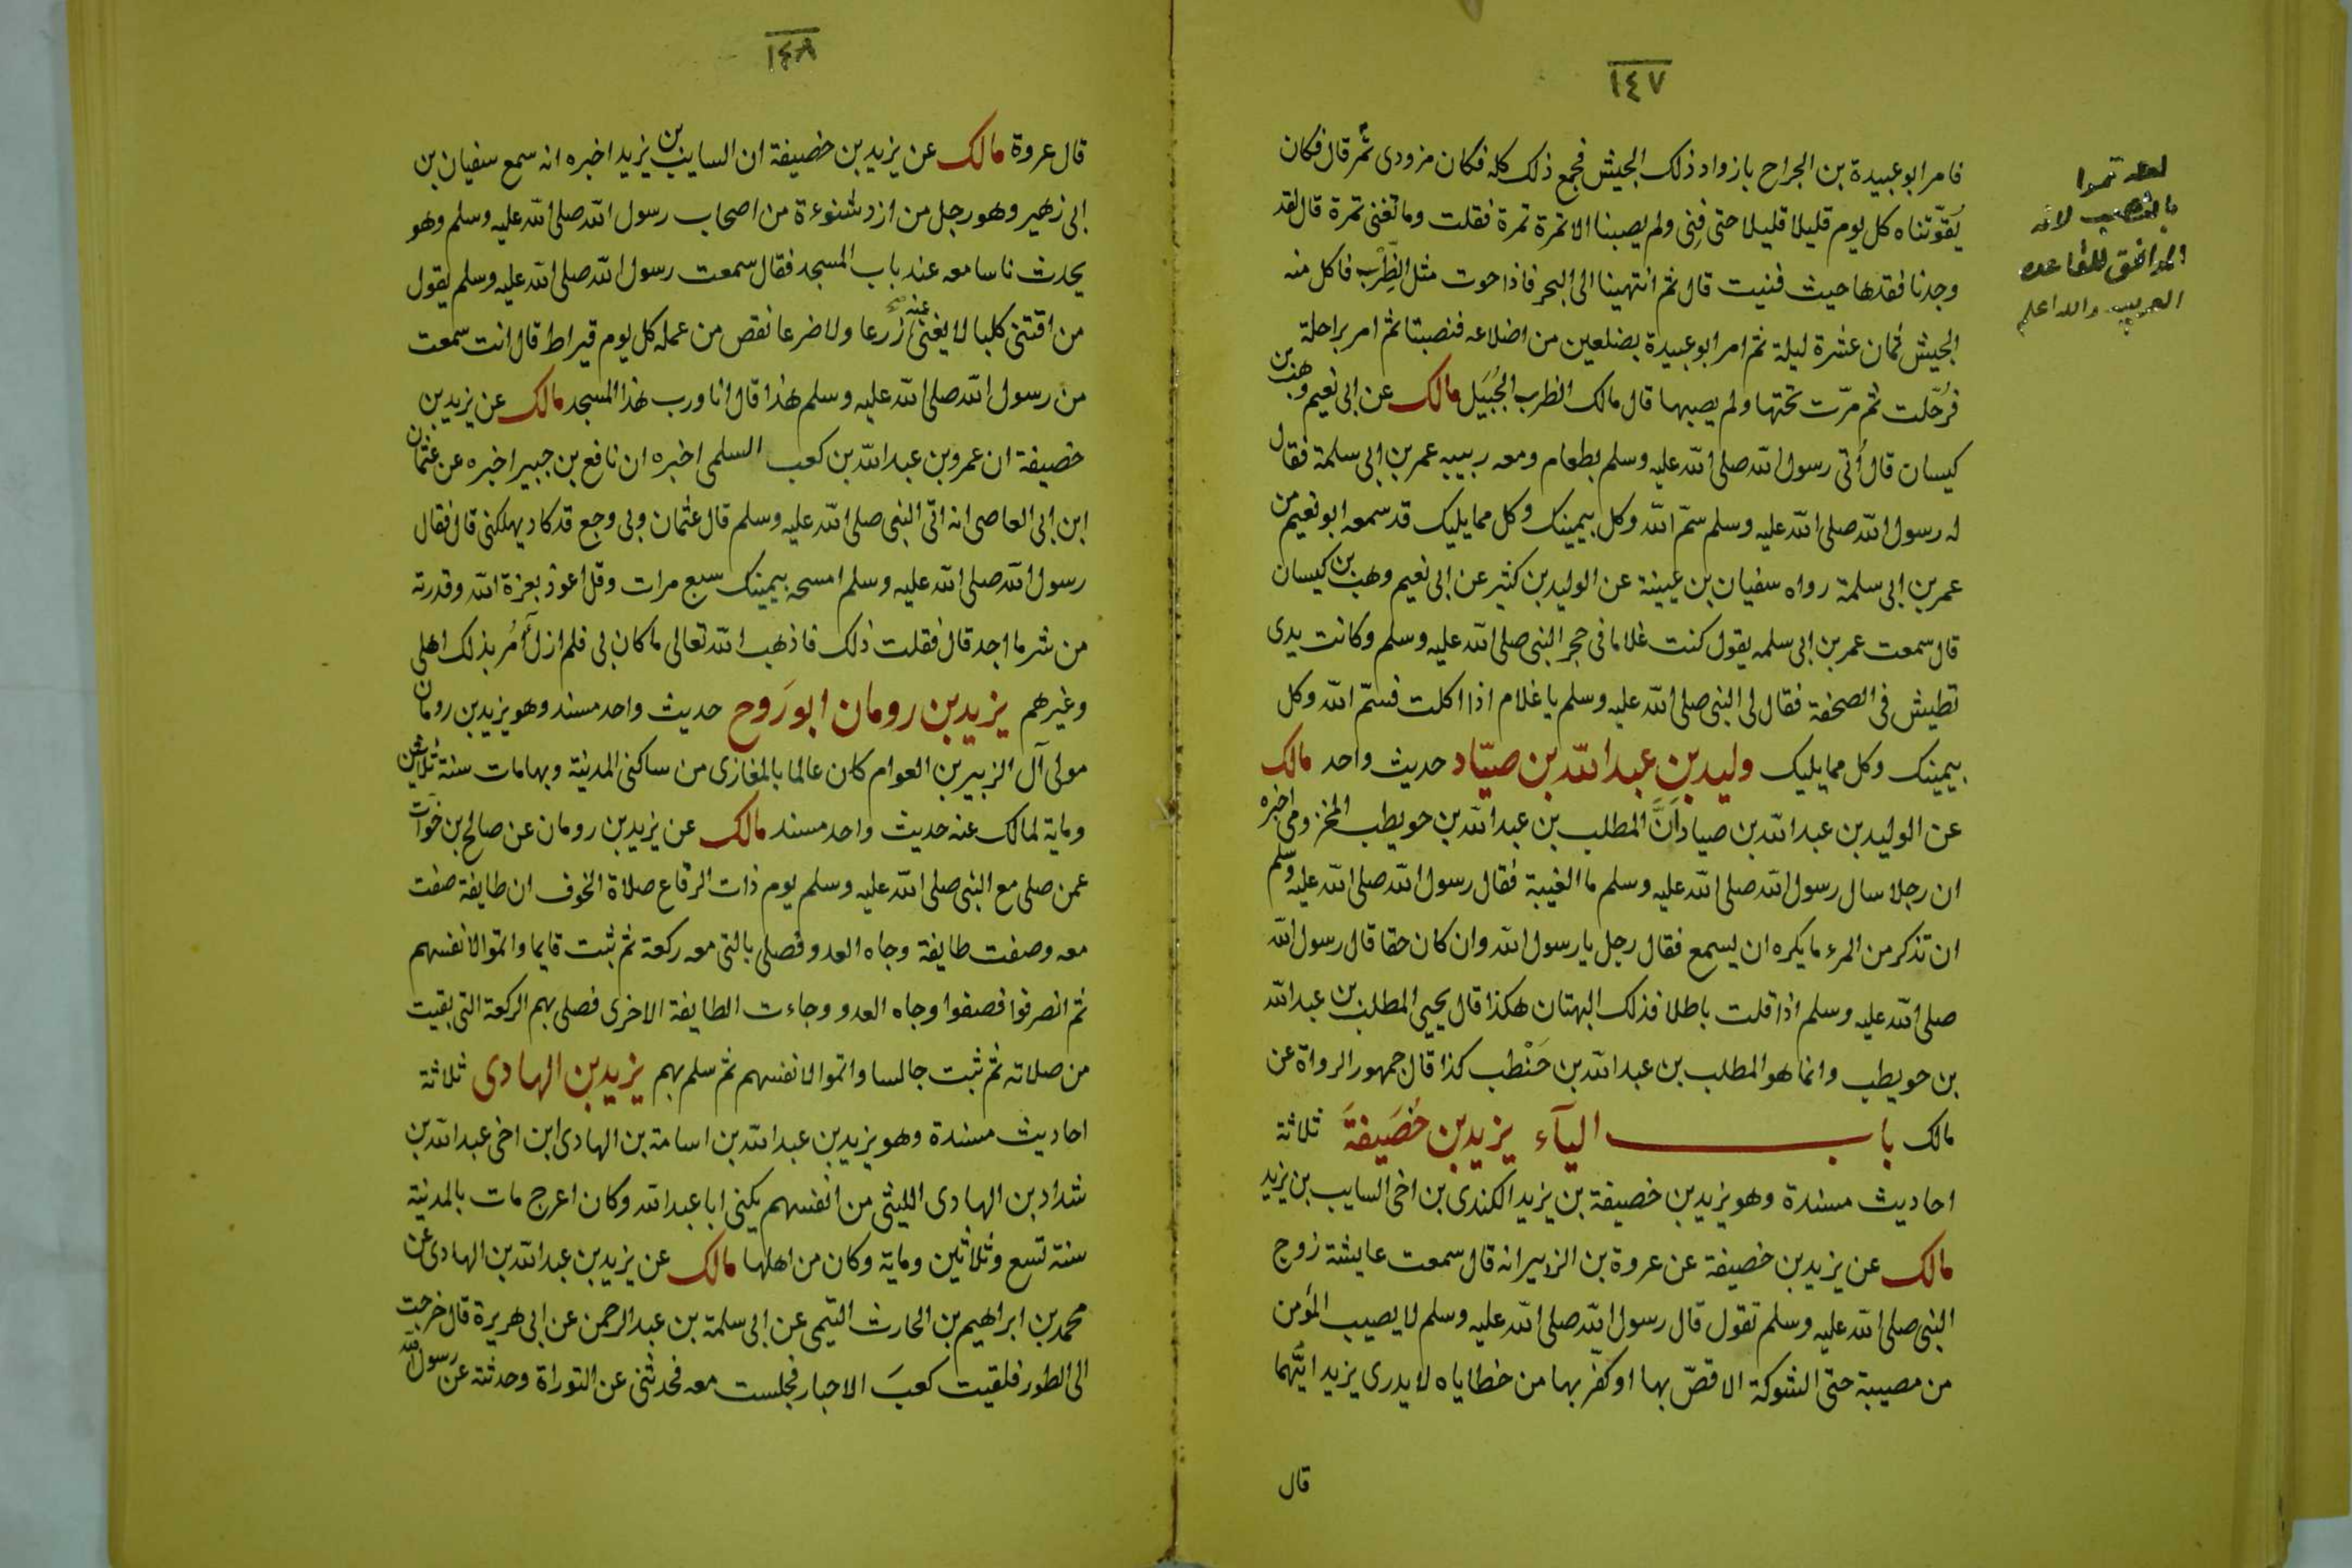 ١٤٧
فامر ابو عبيدة بن الجراح بازواد ذلك الجيش فجمع ذلك كله فكان مزودى تمر قال فكان
يُقوّتناه كل يوم قليلا قليلا حتى فنى ولم يصبنا الا تمرة تمرة فقلت وما تغنى تمرة قال لقد
وجدنا فقدها حيث فنيت قال ثم انتهينا الى البحر فاذا حوت مثل الظّرِب فاكل منه
الجيش ثمان عشرة ليلة ثم امر ابو عبيدة بضلعين من اضلاعه فنصبتا ثم امر براحلة
فرُحّلت ثم مرّت تحتها ولم يصبها قال مالك الظرب الجُبَيل مالك عن ابى نعيم وهب بن
كيسان قال أُتى رسول الله صلى الله عليه وسلم بطعام ومعه ربيبه عمر بن ابى سلمة فقال
له رسول الله صلى الله عليه وسلم سمّ الله وكل بيمينك وكل مما يليك قد سمعه ابو نعيم من
عمر بن ابى سلمة رواه سفيان بن عيينة عن الوليد بن كثير عن ابى نعيم وهب بن كيسان
قال سمعت عمر بن ابى سلمه يقول كنت غلاما فى حجر النبى صلى الله عليه وسلم وكانت يدى
تطيش فى الصحفة فقال لى النبى صلى الله عليه وسلم يا غلام اذا اكلت فسمّ الله وكل
بيمينك وكل مما يليك وليد بن عبد الله بن صيّاد حديث واحد مالك
عن الوليد بن عبد الله بن صياد اَنَّ المطلب بن عبد الله بن حويطب المخزومى اخبره
ان رجلا سال رسول الله صلى الله عليه وسلم ما الغيبة فقال رسول الله صلى الله عليه وسلم
ان تذكر من المرء ما يكره ان يسمع فقال رجل يا رسول الله وان كان حقا قال رسول الله
صلى الله عليه وسلم اذا قلت باطلا فذلك البهتان هكذا قال يحيى المطلب بن عبد الله
بن حويطب وانما هو المطلب بن عبد الله بن حَنْطب كذا قال جمهور الرواة عن
مالك باب اليآء يزيد بن خُصَيفةَ ثلاثة
احاديث مسندة وهو يزيد بن خصيفة بن يزيد الكندى بن اخى السايب بن يزيد
مالك عن يزيد بن خصيفة عن عروة بن الزبير انه قال سمعت عايشة زوج
النبى صلى الله عليه وسلم تقول قال رسول الله صلى الله عليه وسلم لا يصيب المؤمن
من مصيبة حتى الشوكة الا قصّ بها او كفر بها من خطاياه لا يدرى يزيد ايّهما
قال
لعله تمرا
بالنصب لانه
الموافق للقاعده
العربيه والله اعلم
١٤٨
قال عروة مالك عن يزيد بن خصيفة ان السايب بن يزيد اخبره انه سمع سفيان بن
ابى زهير وهو رجل من ازد شنوءة من اصحاب رسول الله صلى الله عليه وسلم وهو
يحدث ناسا معه عند باب المسجد فقال سمعت رسول الله صلى الله عليه وسلم يقول
من اقتنى كلبا لا يغنى عنه زرعا ولا ضرعا نقص من عمله كل يوم قيراط قال انت سمعت
من رسول الله صلى الله عليه وسلم هذا قال انا ورب هذا المسجد مالك عن يزيد بن
خصيفة ان عمرو بن عبد الله بن كعب السلمى اخبره ان نافع بن جبير اخبره عن عثمان
ابن ابى العاصى انه اتى النبى صلى الله عليه وسلم قال عثمان وبى وجع قد كاد يهلكنى قال فقال
رسول الله صلى الله عليه وسلم امسحه بيمينك سبع مرات وقل اعوذ بعزة الله وقدرته
من شر ما اجد قال فقلت ذلك فاذهب الله تعالى ما كان بى فلم ازل آمُر بذلك اهلى
وغيرهم يزيد بن رومان ابو رَوح حديث واحد مسند وهو يزيد بن رومان
مولى آل الزبير بن العوام كان عالما بالمغازى من ساكنى المدينة وبها مات سنة ثلاثين
وماية لمالك عنه حديث واحد مسند مالك عن يزيد بن رومان عن صالح بن خوّات
عمن صلى مع النبى صلى الله عليه وسلم يوم ذات الرقاع صلاة الخوف ان طايفة صفت
معه وصفت طايفة وجاه العدو فصلى بالتى معه ركعة ثم ثبت قايما واتموا لانفسهم
ثم انصرفوا فصفوا وجاه العدو وجاءت الطايفة الاخرى فصلى بهم الركعة التى بقيت
من صلاته ثم ثبت جالسا واتموا لانفسهم ثم سلم بهم يزيد بن الهادى ثلاثة
احاديث مسندة وهو يزيد بن عبد الله بن اسامة بن الهادى ابن اخى عبد الله بن
شداد بن الهادى الليثى من انفسهم يكنى ابا عبد الله وكان اعرج مات بالمدينة
سنة تسع وثلاثين وماية وكان من اهلها مالك عن يزيد بن عبد الله بن الهادى عن
محمد بن ابراهيم بن الحارث التيمى عن ابى سلمة بن عبد الرحمن عن ابى هريرة قال خرجت
الى الطور فلقيت كعبَ الاحبار فجلست معه فحدثنى عن التوراة وحدثته عن رسول الله